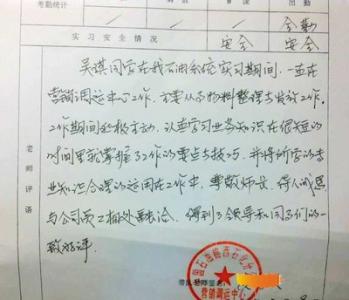 考勤统计
出勤
全勤
实习安全情况
安全
安全
吴祺同学在我石油系统实习期间，一直在
营销调运中心工作，主要从事物料整理与发放工作。
工作期间积极主动，认真学习业务知识在很短的
时间里就掌握了工作的要点与技巧，并将所学的专
业知识合理的运用在工作中，尊敬师长，待人诚恳
与公司员工相处融洽，得到了领导和同事们的一
致好评。
老师评语
营销调运中心